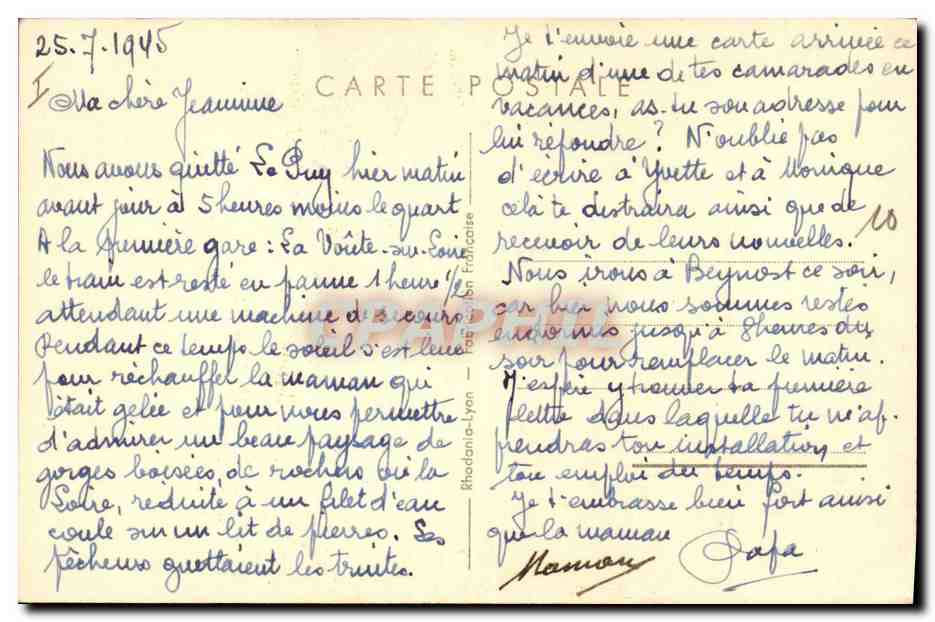 25.7.1945
I
CARTE POSTALE
Ma chère Jeannine
Nous avons quitté Le Puy hier matin
avant jour à 5 heures moins le quart
A la première gare : La Voûte-sur-Loire
le train est resté en panne 1 heure 1/2
attendant une machine de secours
Pendant ce temps le soleil s'est levé
pour réchauffer la maman qui
était gelée et pour nous permettre
d'admirer un beau paysage de
gorges boisées, de rochers où la
Loire, réduite à un filet d'eau
coule sur un lit de pierres. Les
pêcheurs guettaient les truites.
Rhodania-Lyon — Fabrication Française
Je t'envoie une carte arrivée ce
matin d'une de tes camarades en
vacances, as-tu son adresse pour
lui répondre ? N'oublie pas
d'écrire à Yvette et à Monique
celà te distraira ainsi que de
recevoir de leurs nouvelles.
10
Nous irons à Beynost ce soir,
car hier nous sommes restés
endormis jusqu'à 8 heures du
soir pour remplacer le matin.
J'espère y trouver ta première
lettre dans laquelle tu m'ap-
prendras ton installation et
ton emploi du temps.
Je t'embrasse bien fort ainsi
que la maman
Maman
Papa